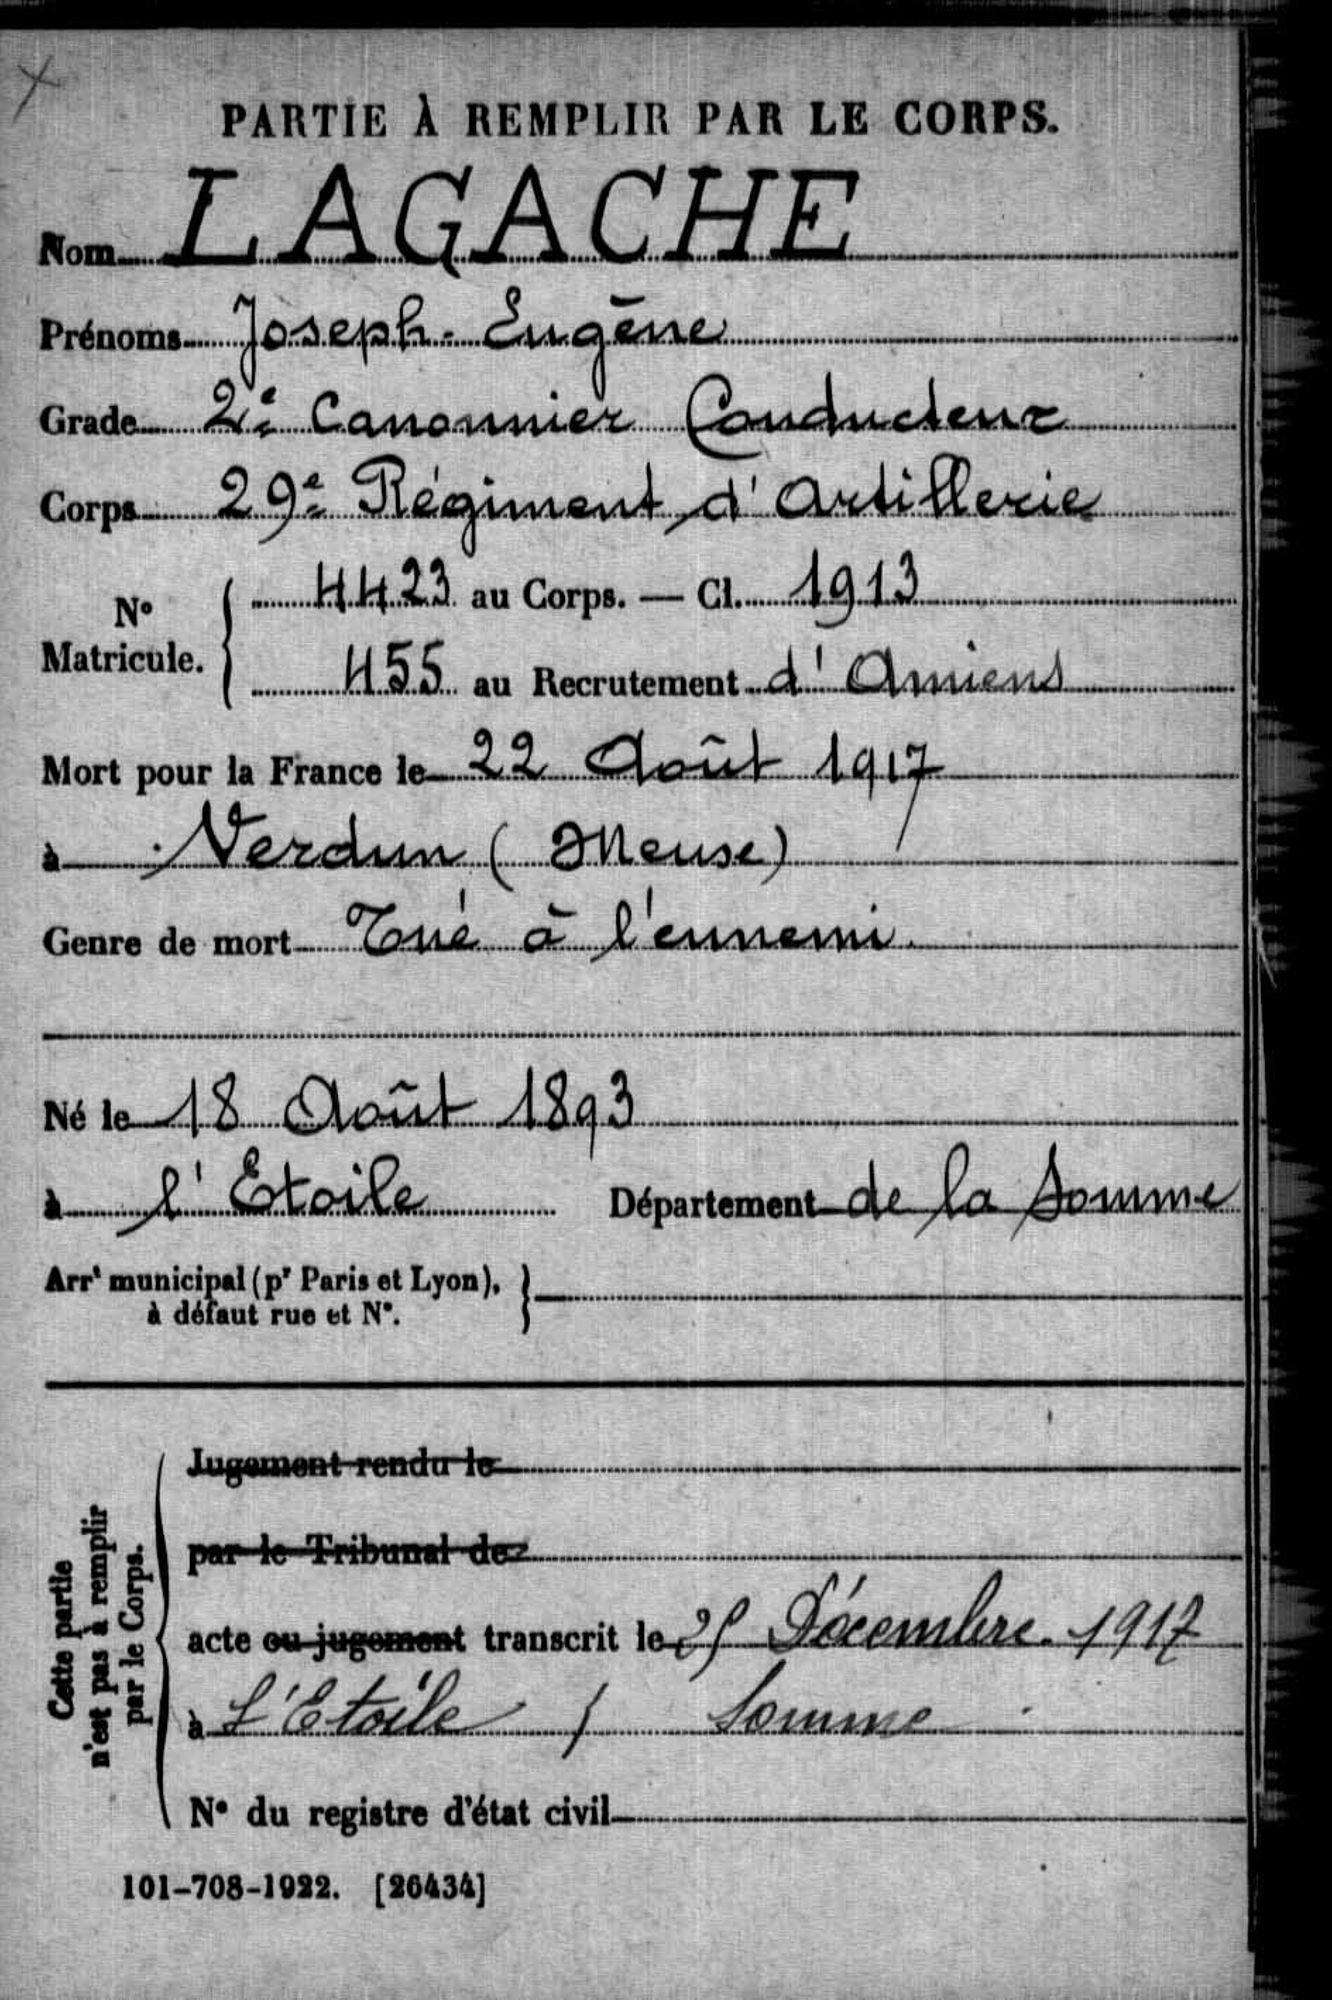 PARTIE À REMPLIR PAR LE CORPS.
Nom LAGACHE
Prénoms Joseph-Eugène
Grade 2e Canonnier Conducteur
Corps 29e Régiment d'Artillerie
N° Matricule. { 4423 au Corps. — Cl. 1913
455 au Recrutement d'Amiens
Mort pour la France le 22 Août 1917
à Verdun (Meuse)
Genre de mort Tué à l'ennemi.
Né le 18 Août 1893
à l'Etoile Département de la Somme
Arrt municipal (pr Paris et Lyon), }
à défaut rue et N°.
Cette partie
n'est pas à remplir
par le Corps.
Jugement rendu le
par le Tribunal de
acte ou jugement transcrit le 25 Décembre 1917
à L'Etoile / Somme
N° du registre d'état civil
101-708-1922. [26434]